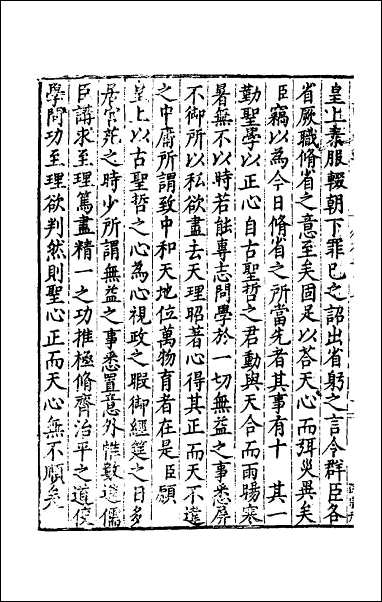 皇上素服輟朝下罪已之詔出省躬之言令群臣各
省厥職脩省之意至矣固足以荅天心而弭災異矣
臣竊以為今日脩省之所當先者其事有十 其一
勤聖學以正心自古聖哲之君動與天合而雨暘寒
暑無不以時若能專志問學於一切無益之事悉屏
不御所以私欲盡去天理昭著心得其正而天不違
之中庸所謂致中和天地位萬物育者在是臣願
皇上以古聖哲之心為心視政之暇御經筵之日多
居宮苑之時少所謂無益之事悉置意外惟致選儒
臣講求至理篤盡精一之功推極脩齊治平之道使
學問功至理欲判然則聖心正而天心無不順矣